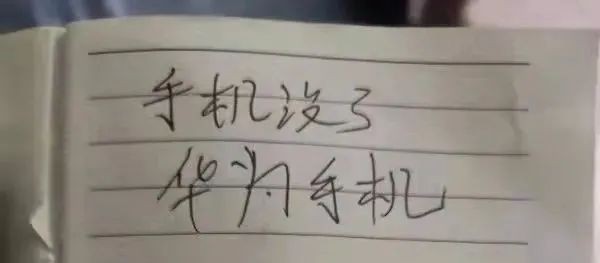 手机没了
华为手机